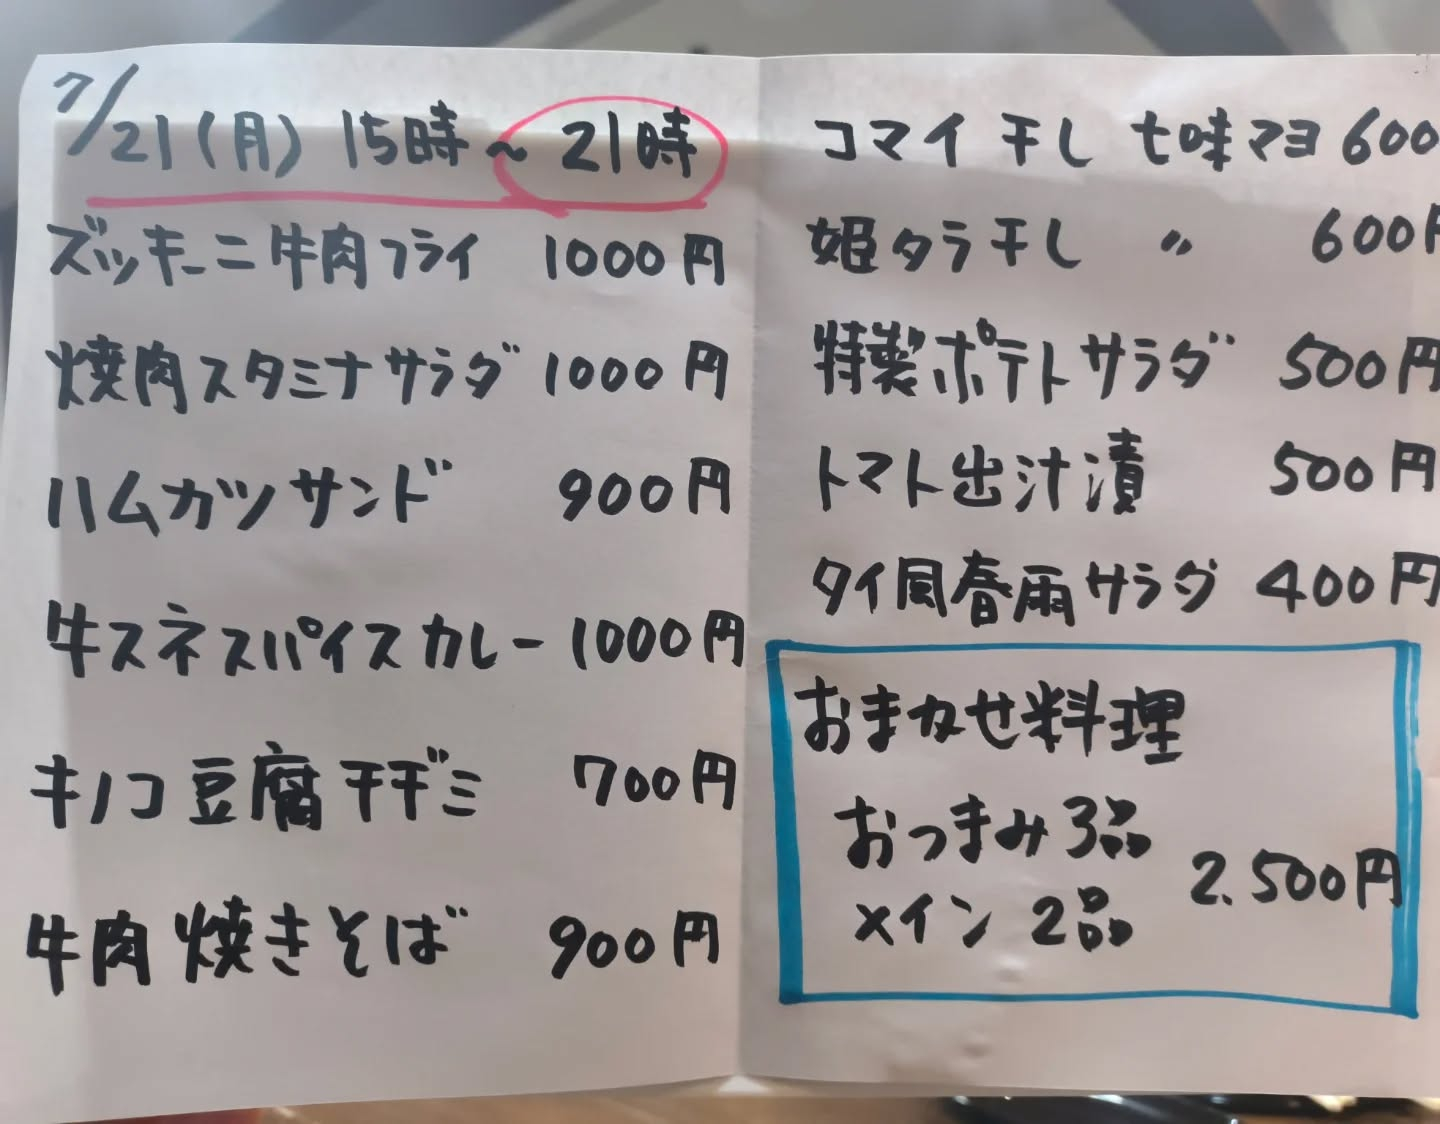 7/21(月) 15時~21時
ズッキーニ牛肉フライ 1000円
焼肉スタミナサラダ 1000円
ハムカツサンド 900円
牛スネスパイスカレー 1000円
キノコ豆腐チヂミ 700円
牛肉焼きそば 900円
コマイ干し 七味マヨ 600
姫タラ干し 〃 600円
特製ポテトサラダ 500円
トマト出汁漬 500円
タイ風春雨サラダ 400円
おまかせ料理
おつまみ3品
メイン 2品 2.500円